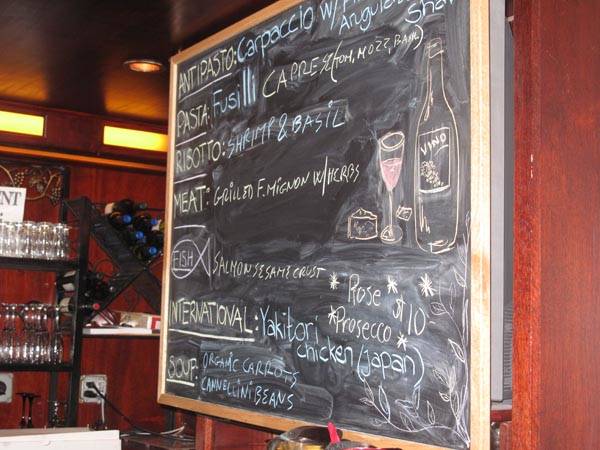 ANTIPASTO: Carpaccio w/
Arugula
CAPRESE (TOM, MOZZ, BASIL)
PASTA: Fusilli
RISOTTO: SHRIMP & BASIL
MEAT: GRILLED F. MIGNON W/HERBS
FISH SALMON SESAME CRUST
INTERNATIONAL: Yakitori
chicken (Japan)
SOUP: ORGANIC CARROTS
CANNELLINI BEANS
* Rose *
* Prosecco *
$10
VINO